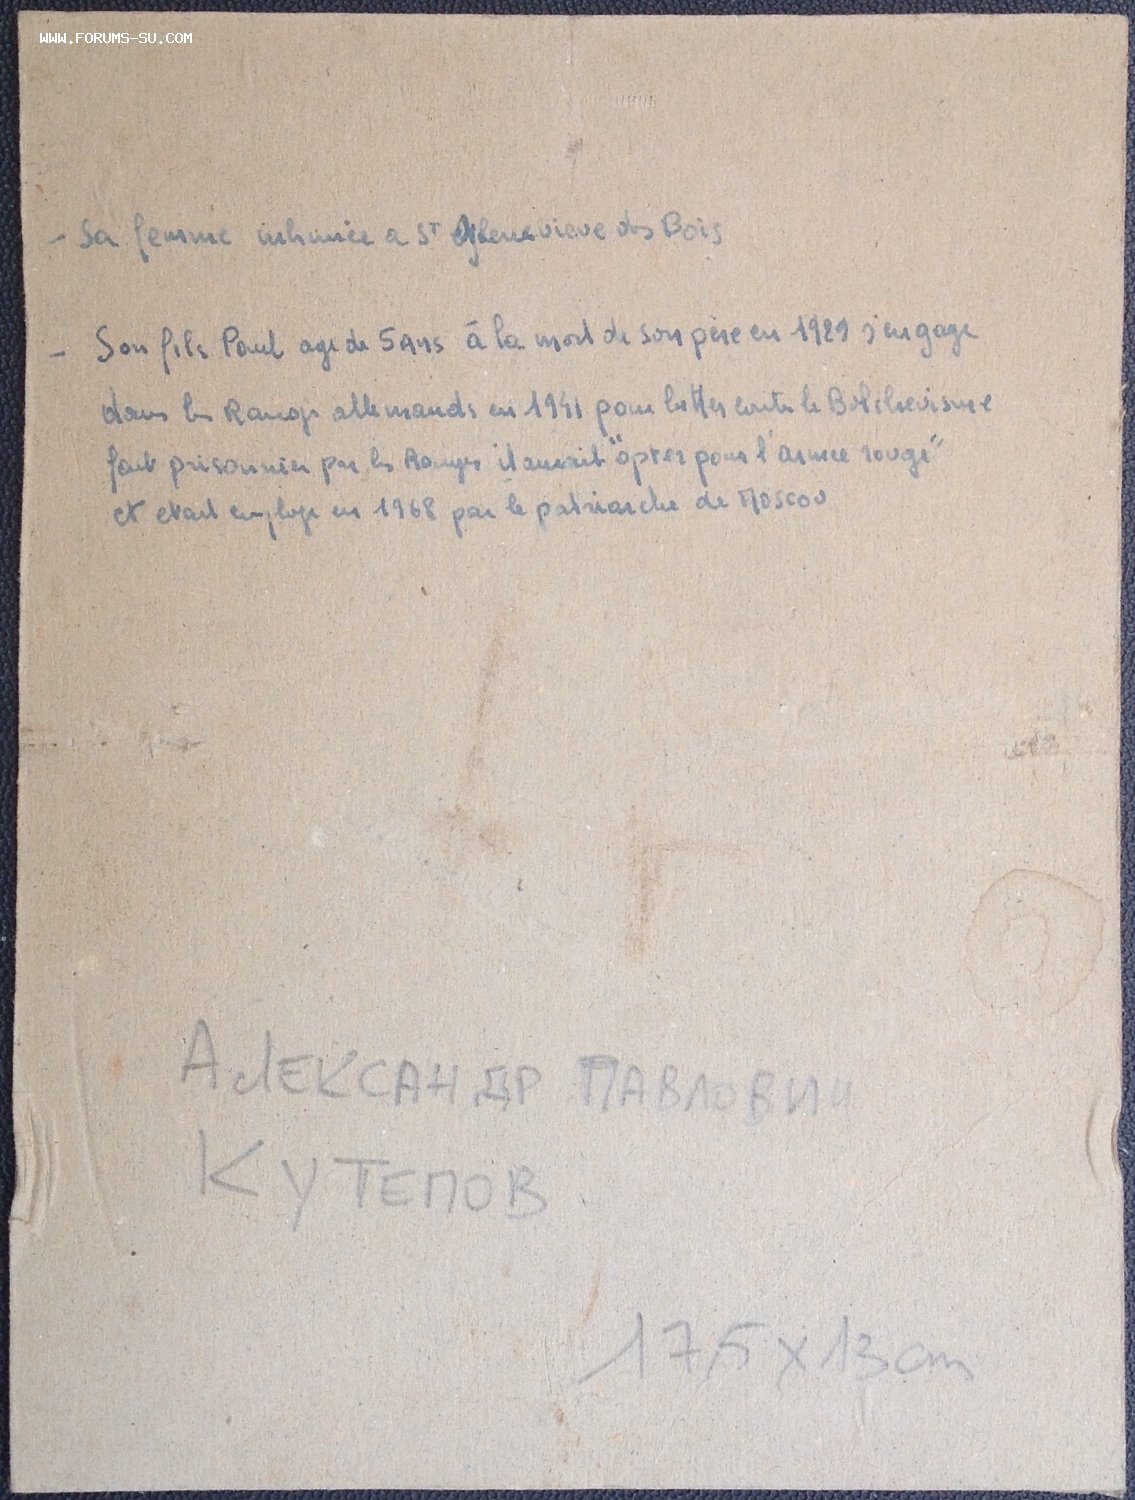 WWW.FORUMS-SU.COM
- Sa femme inhumée a St Genevieve des Bois
- Son fils Paul age de 5 ans à la mort de son père en 1929 s'engage
dans les Rangs allemands en 1941 pour lutter contre le Bolchevisme
fait prisonnier par les Rouges il aurait "opter pour l'armee rouge"
et etait employe en 1968 par le patriarche de Moscou
АЛЕКСАНДР ПАВЛОВИЧ
КУТЕПОВ
17,5 x 13 cm